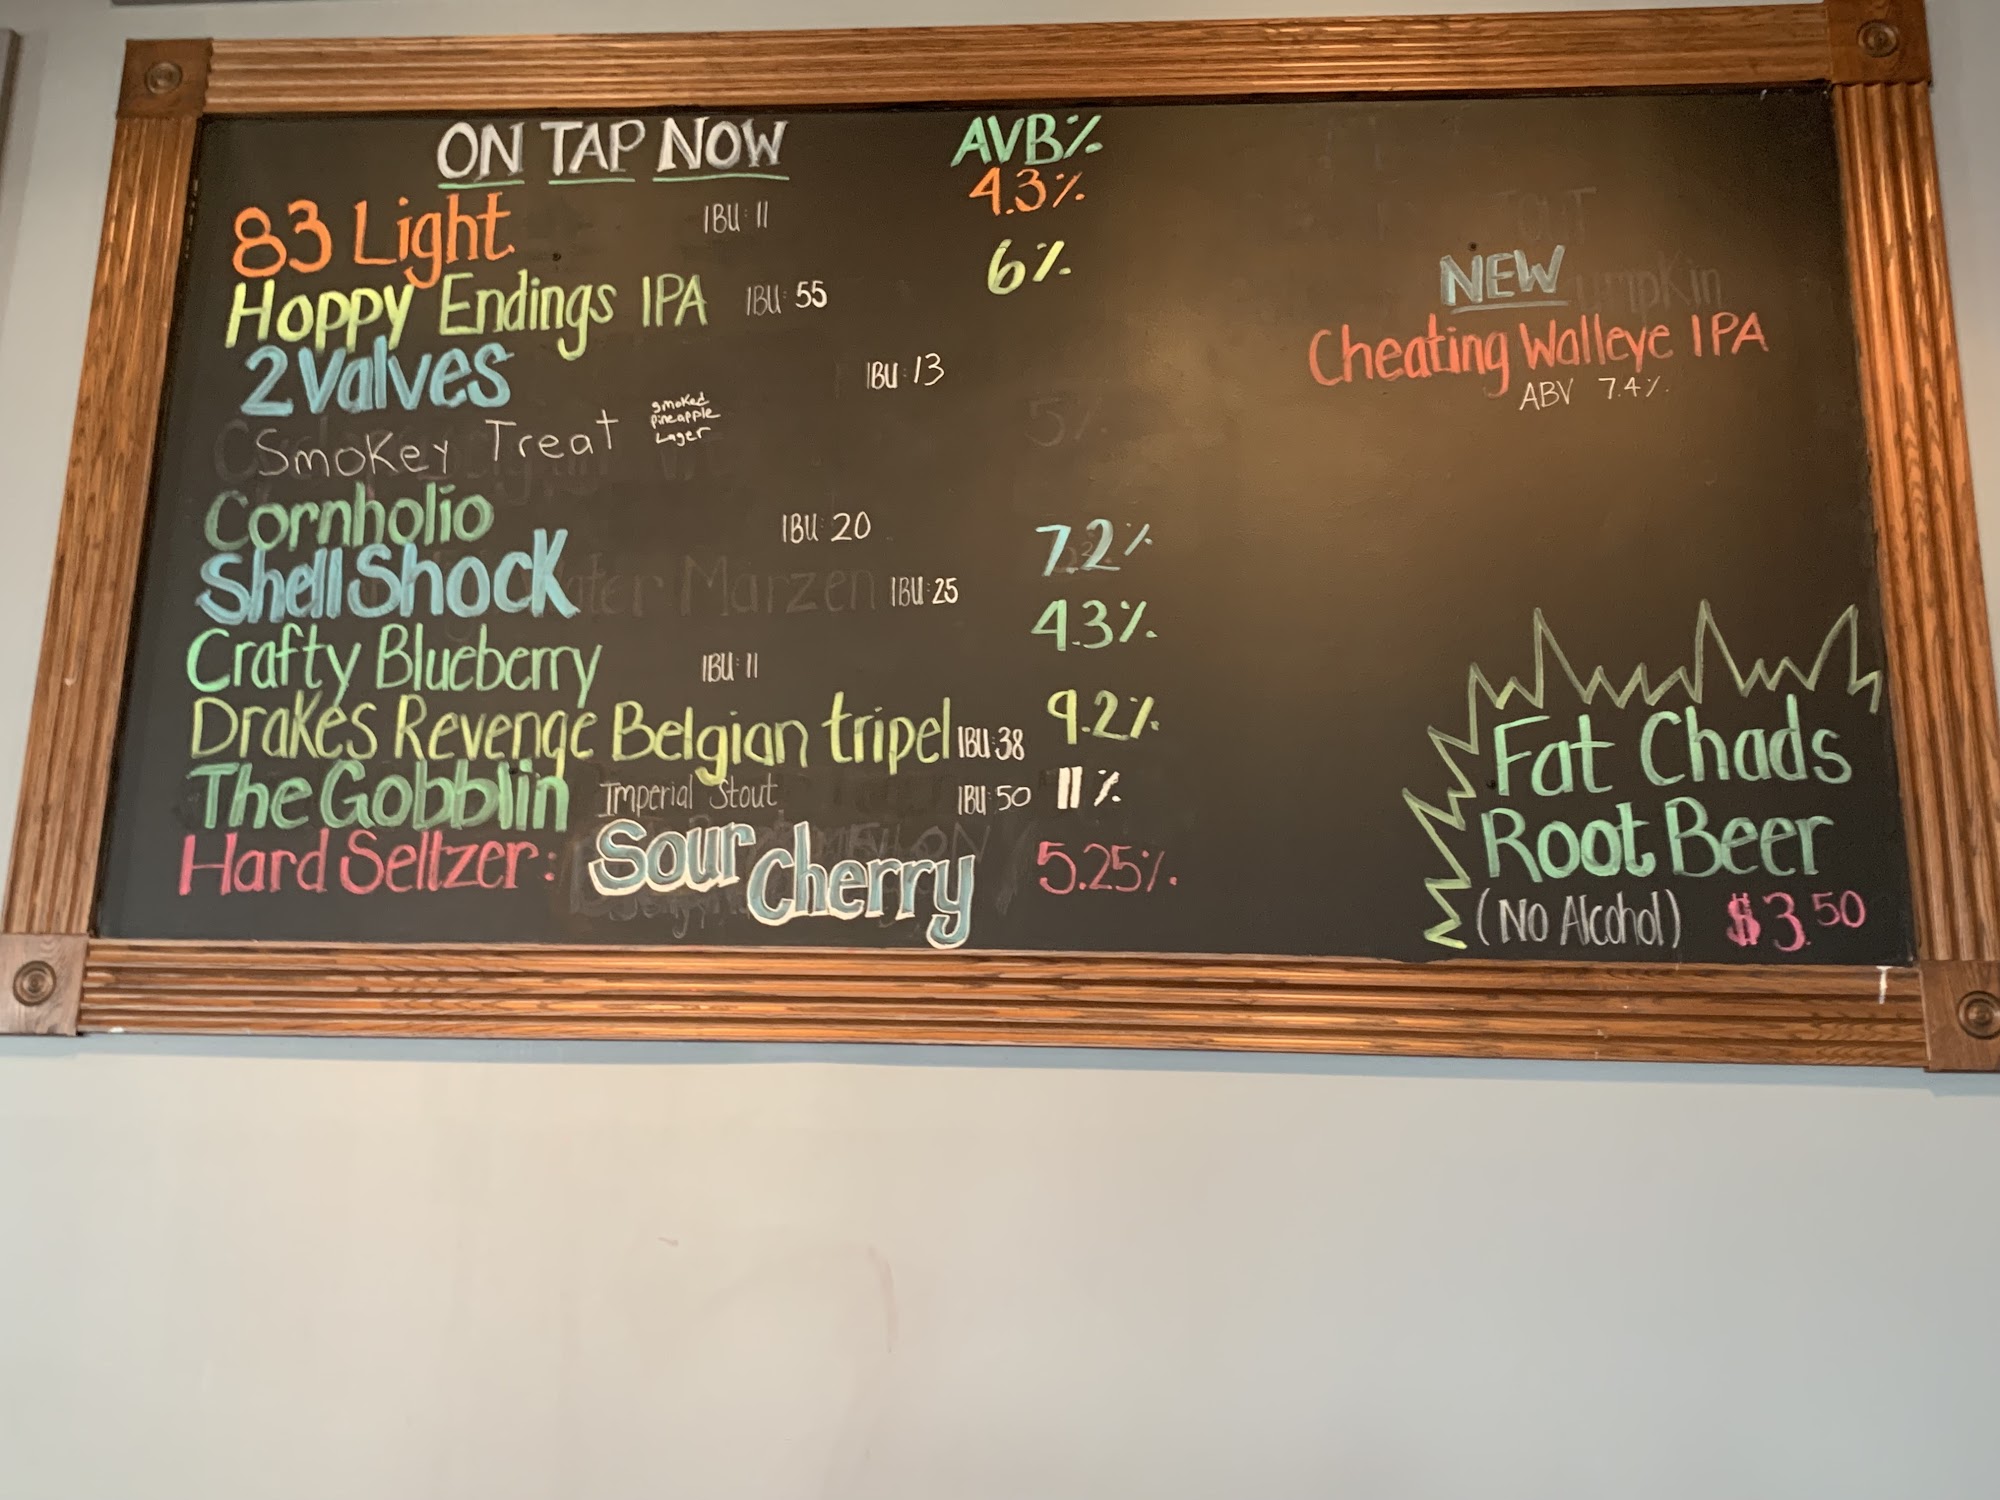 ON TAP NOW AVB%
83 Light IBU: 11 4.3%
Hoppy Endings IPA IBU: 55 6%
2 Valves IBU: 13
Smokey Treat smoked
pineapple
Lager
Cornholio IBU: 20
Shell Shock IBU: 25 7.2%
Crafty Blueberry IBU: 11 4.3%
Drakes Revenge Belgian tripel IBU: 38 9.2%
The Gobblin Imperial Stout IBU: 50 11%
Hard Seltzer: Sour Cherry 5.25%
NEW
Cheating Walleye IPA
ABV 7.4%
Fat Chads
Root Beer
(No Alcohol) $3.50